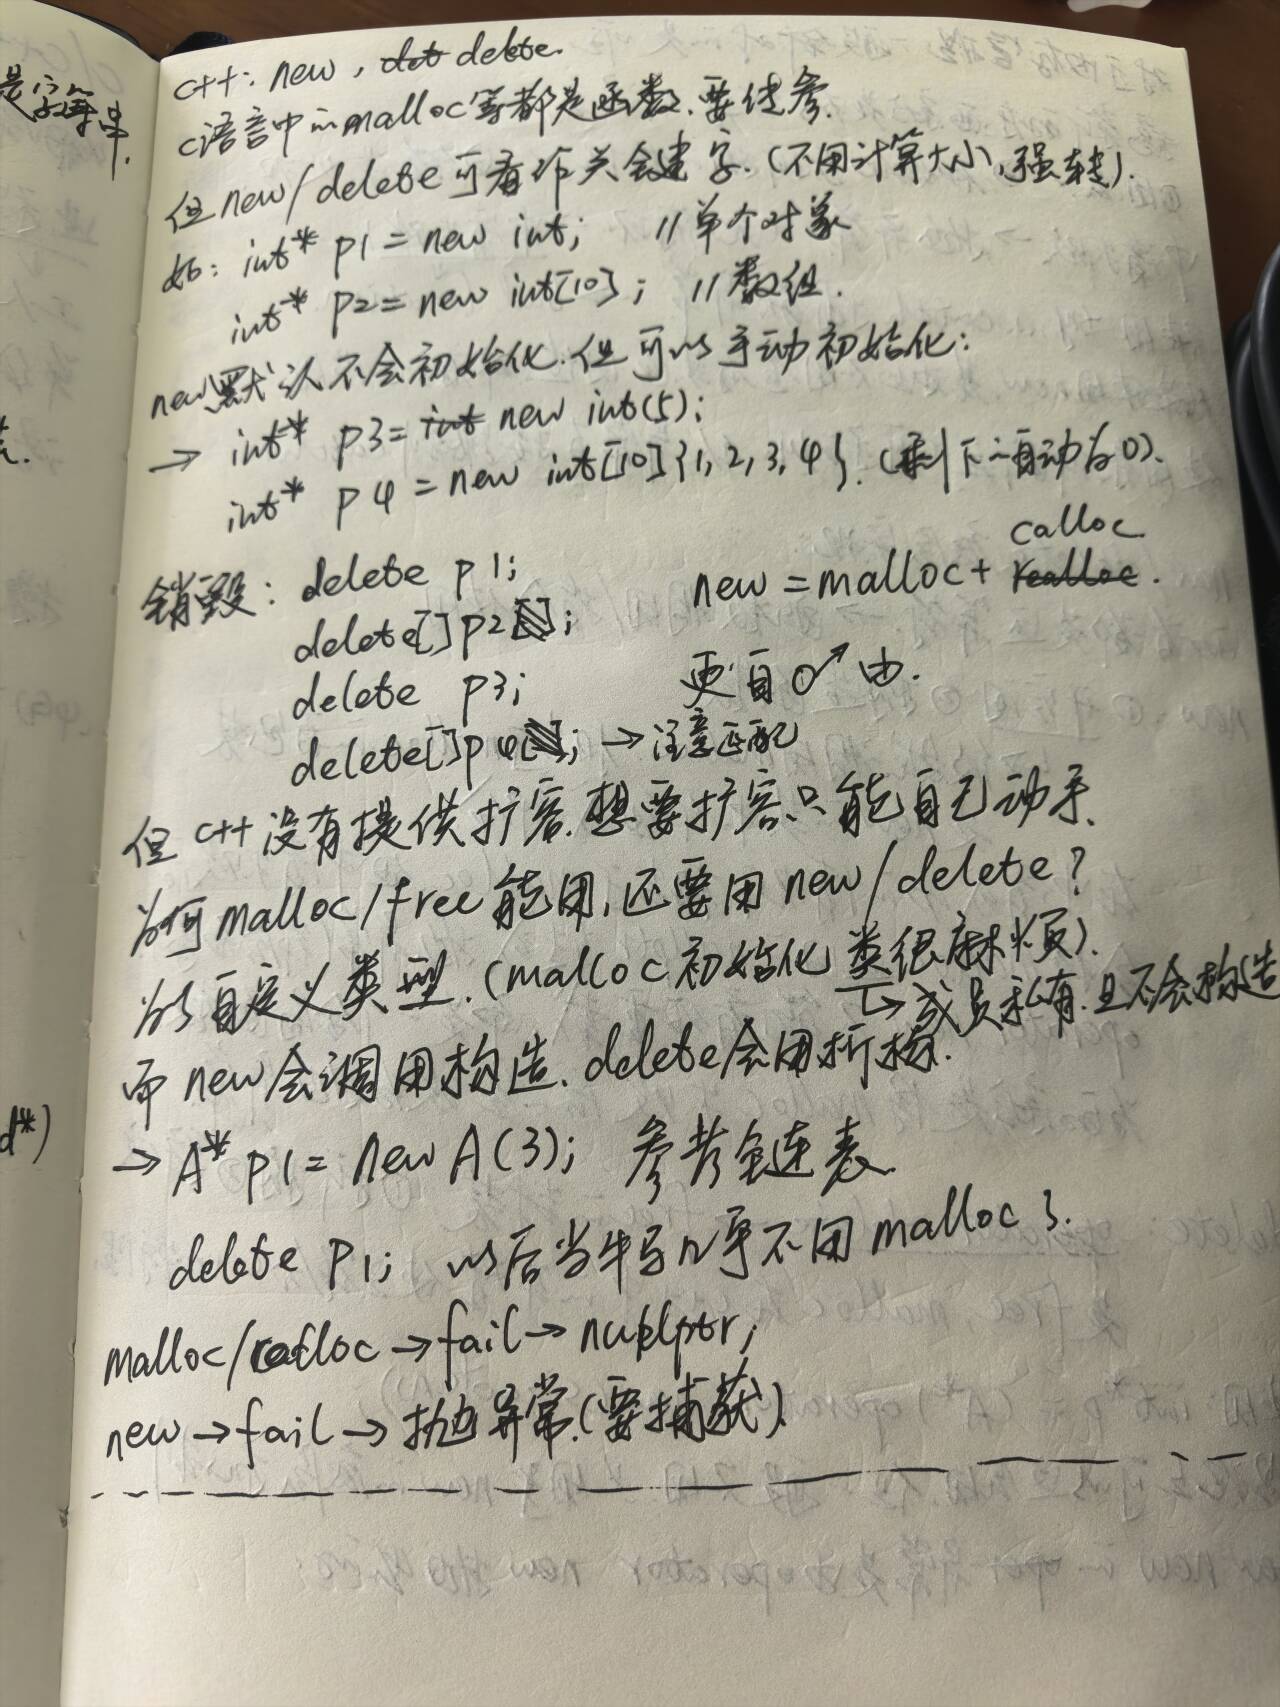 是字符串.
d*)
C++: new, delete.
C语言中的malloc等都是函数.要传参.
但new/delete可看作关键字.(不用计算大小,强转).
如: int* p1 = new int; //单个对象
int* p2 = new int[10]; //数组.
new默认不会初始化.但可以手动初始化:
→ int* p3 = new int(5);
int* p4 = new int[10]{1,2,3,4}. (剩下的自动为0).
销毁: delete p1; new = malloc + calloc.
delete[]p2;
delete p3; 更自由.
delete[]p4; →注意匹配
但C++没有提供扩容.想要扩容只能自己动手.
为何malloc/free能用,还要用new/delete?
为了自定义类型.(malloc初始化类很麻烦).
→成员私有.且不会构造
而new会调用构造.delete会用析构.
→ A* p1 = new A(3); 参考链表.
delete p1; 以后当牛马几乎不用malloc了.
malloc/calloc→fail→nullptr;
new→fail→抛异常.(要捕获).